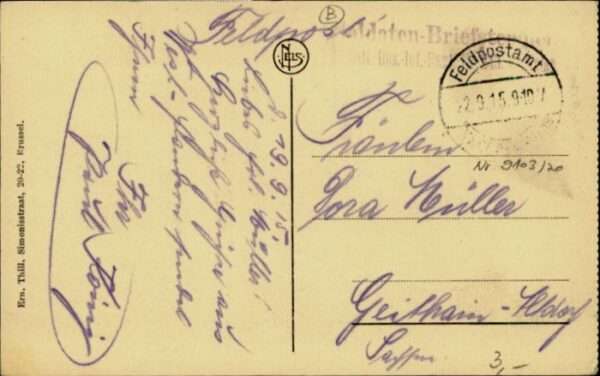 Feldpost
B
Soldaten-Briefstempel
NELS
Feldpostamt
22.9.15.9-10V
Fräulein
Nr 9103/20
Dora Müller
Geithain-Altdorf
Sachsen
3,-
d. 19.9.15.
Liebes Frl. Müller!
Herzliche Grüße aus
West-Flandern sendet
Ihnen
Ihr
Paul König
Ern. Thill, Simonisstraat, 20-22, Brussel.